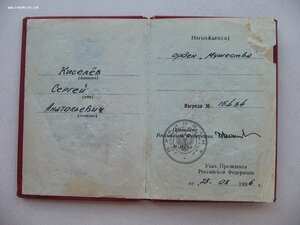 Киселёв
(фамилия)
Сергей
(имя)
Анатольевич
(отчество)
Награждён(а)
орден „Мужества
Награда №
Президент
Российской Федерации
Указ Президента
Российской Федерации
от 28. 08 1996 г.